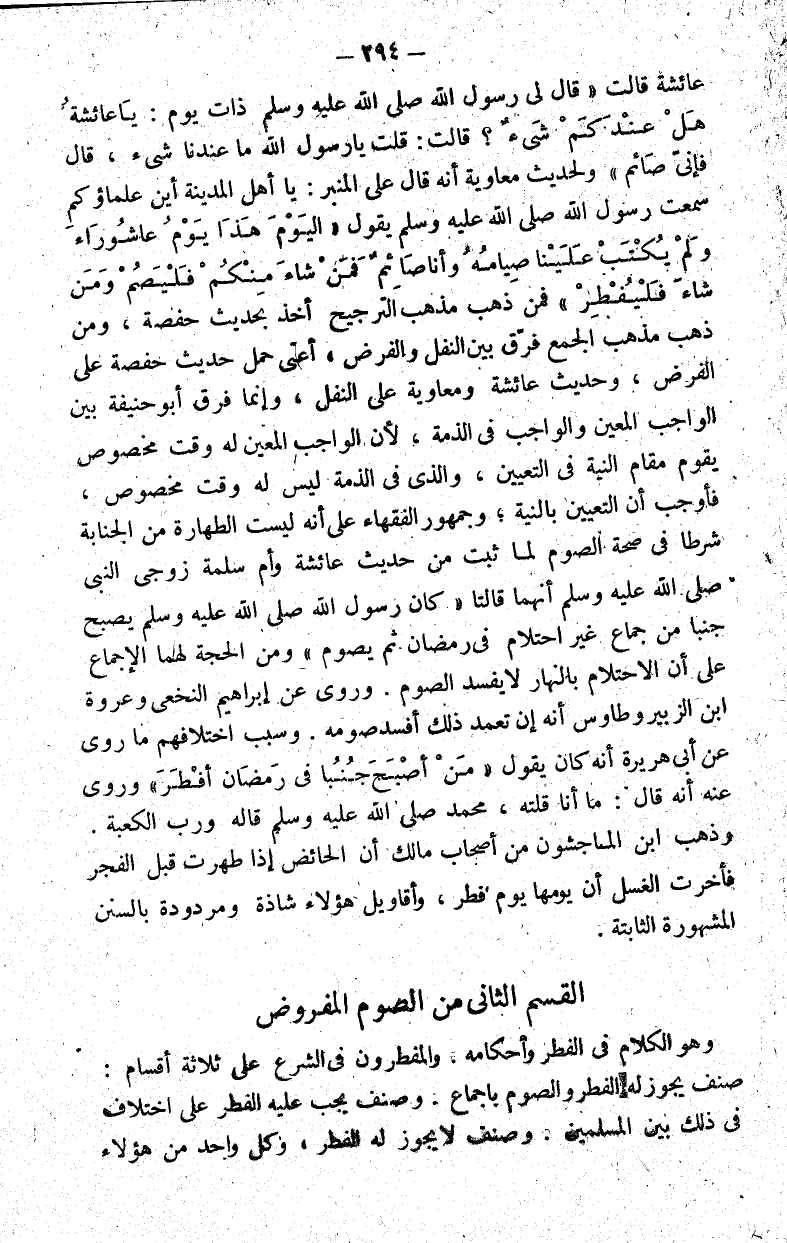 — ٢٩٤ —
عائشة قالت « قال لى رسول الله صلى الله عليه وسلم ذات يوم : يَاعائشةُ
هَلْ عِنْدَكُمْ شَىءٌ ؟ قالت : قلت يارسول الله ما عندنا شىء ، قال
فإنىّ صَائم » ولحديث معاوية أنه قال على المنبر : يا أهل المدينة أين علماؤكم
سمعت رسول الله صلى الله عليه وسلم يقول « اليَوْمَ هَذَا يَوْمُ عاشُورَاءَ
وَلَمْ يُكْتَبْ عَلَيْنا صِيامُهُ وأناصَائمٌ فَمَنْ شاءَ مِنْكُمْ فَلْيَصُمْ وَمَن
شاءَ فَلْيُفْطِرْ » فمن ذهب مذهب الترجيح أخذ بحديث حفصة ، ومن
ذهب مذهب الجمع فرّق بين النفل والفرض ، أعنى حمل حديث حفصة على
الفرض ، وحديث عائشة ومعاوية على النفل ، وإنما فرق أبوحنيفة بين
الواجب المعين والواجب فى الذمة ، لأن الواجب المعين له وقت مخصوص
يقوم مقام النية فى التعيين ، والذى فى الذمة ليس له وقت مخصوص ،
فأوجب أن التعيين بالنية ؛ وجمهور الفقهاء على أنه ليست الطهارة من الجنابة
شرطا فى صحة الصوم لما ثبت من حديث عائشة وأم سلمة زوجى النبى
صلى الله عليه وسلم أنهما قالتا « كان رسول الله صلى الله عليه وسلم يصبح
جنبا من جماع غير احتلام فى رمضان ثم يصوم » ومن الحجة لهما الإجماع
على أن الاحتلام بالنهار لايفسد الصوم . وروى عن إبراهيم النخعى وعروة
ابن الزبير وطاوس أنه إن تعمد ذلك أفسد صومه . وسبب اختلافهم ما روى
عن أبى هريرة أنه كان يقول « مَنْ أصْبَحَ جُنُبا فى رَمضَان أفْطَرَ » وروى
عنه أنه قال : ما أنا قلته ، محمد صلى الله عليه وسلم قاله ورب الكعبة .
وذهب ابن الماجشون من أصحاب مالك أن الحائض إذا طهرت قبل الفجر
فأخرت الغسل أن يومها يوم فطر ، وأقاويل هؤلاء شاذة ومردودة بالسنن
المشهورة الثابتة .
القسم الثانى من الصوم المفروض
وهو الكلام فى الفطر وأحكامه . والمفطرون فى الشرع على ثلاثة أقسام :
صنف يجوز له الفطر والصوم باجماع . وصنف يجب عليه الفطر على اختلاف
فى ذلك بين المسلمين . وصنف لايجوز له الفطر ، وكل واحد من هؤلاء